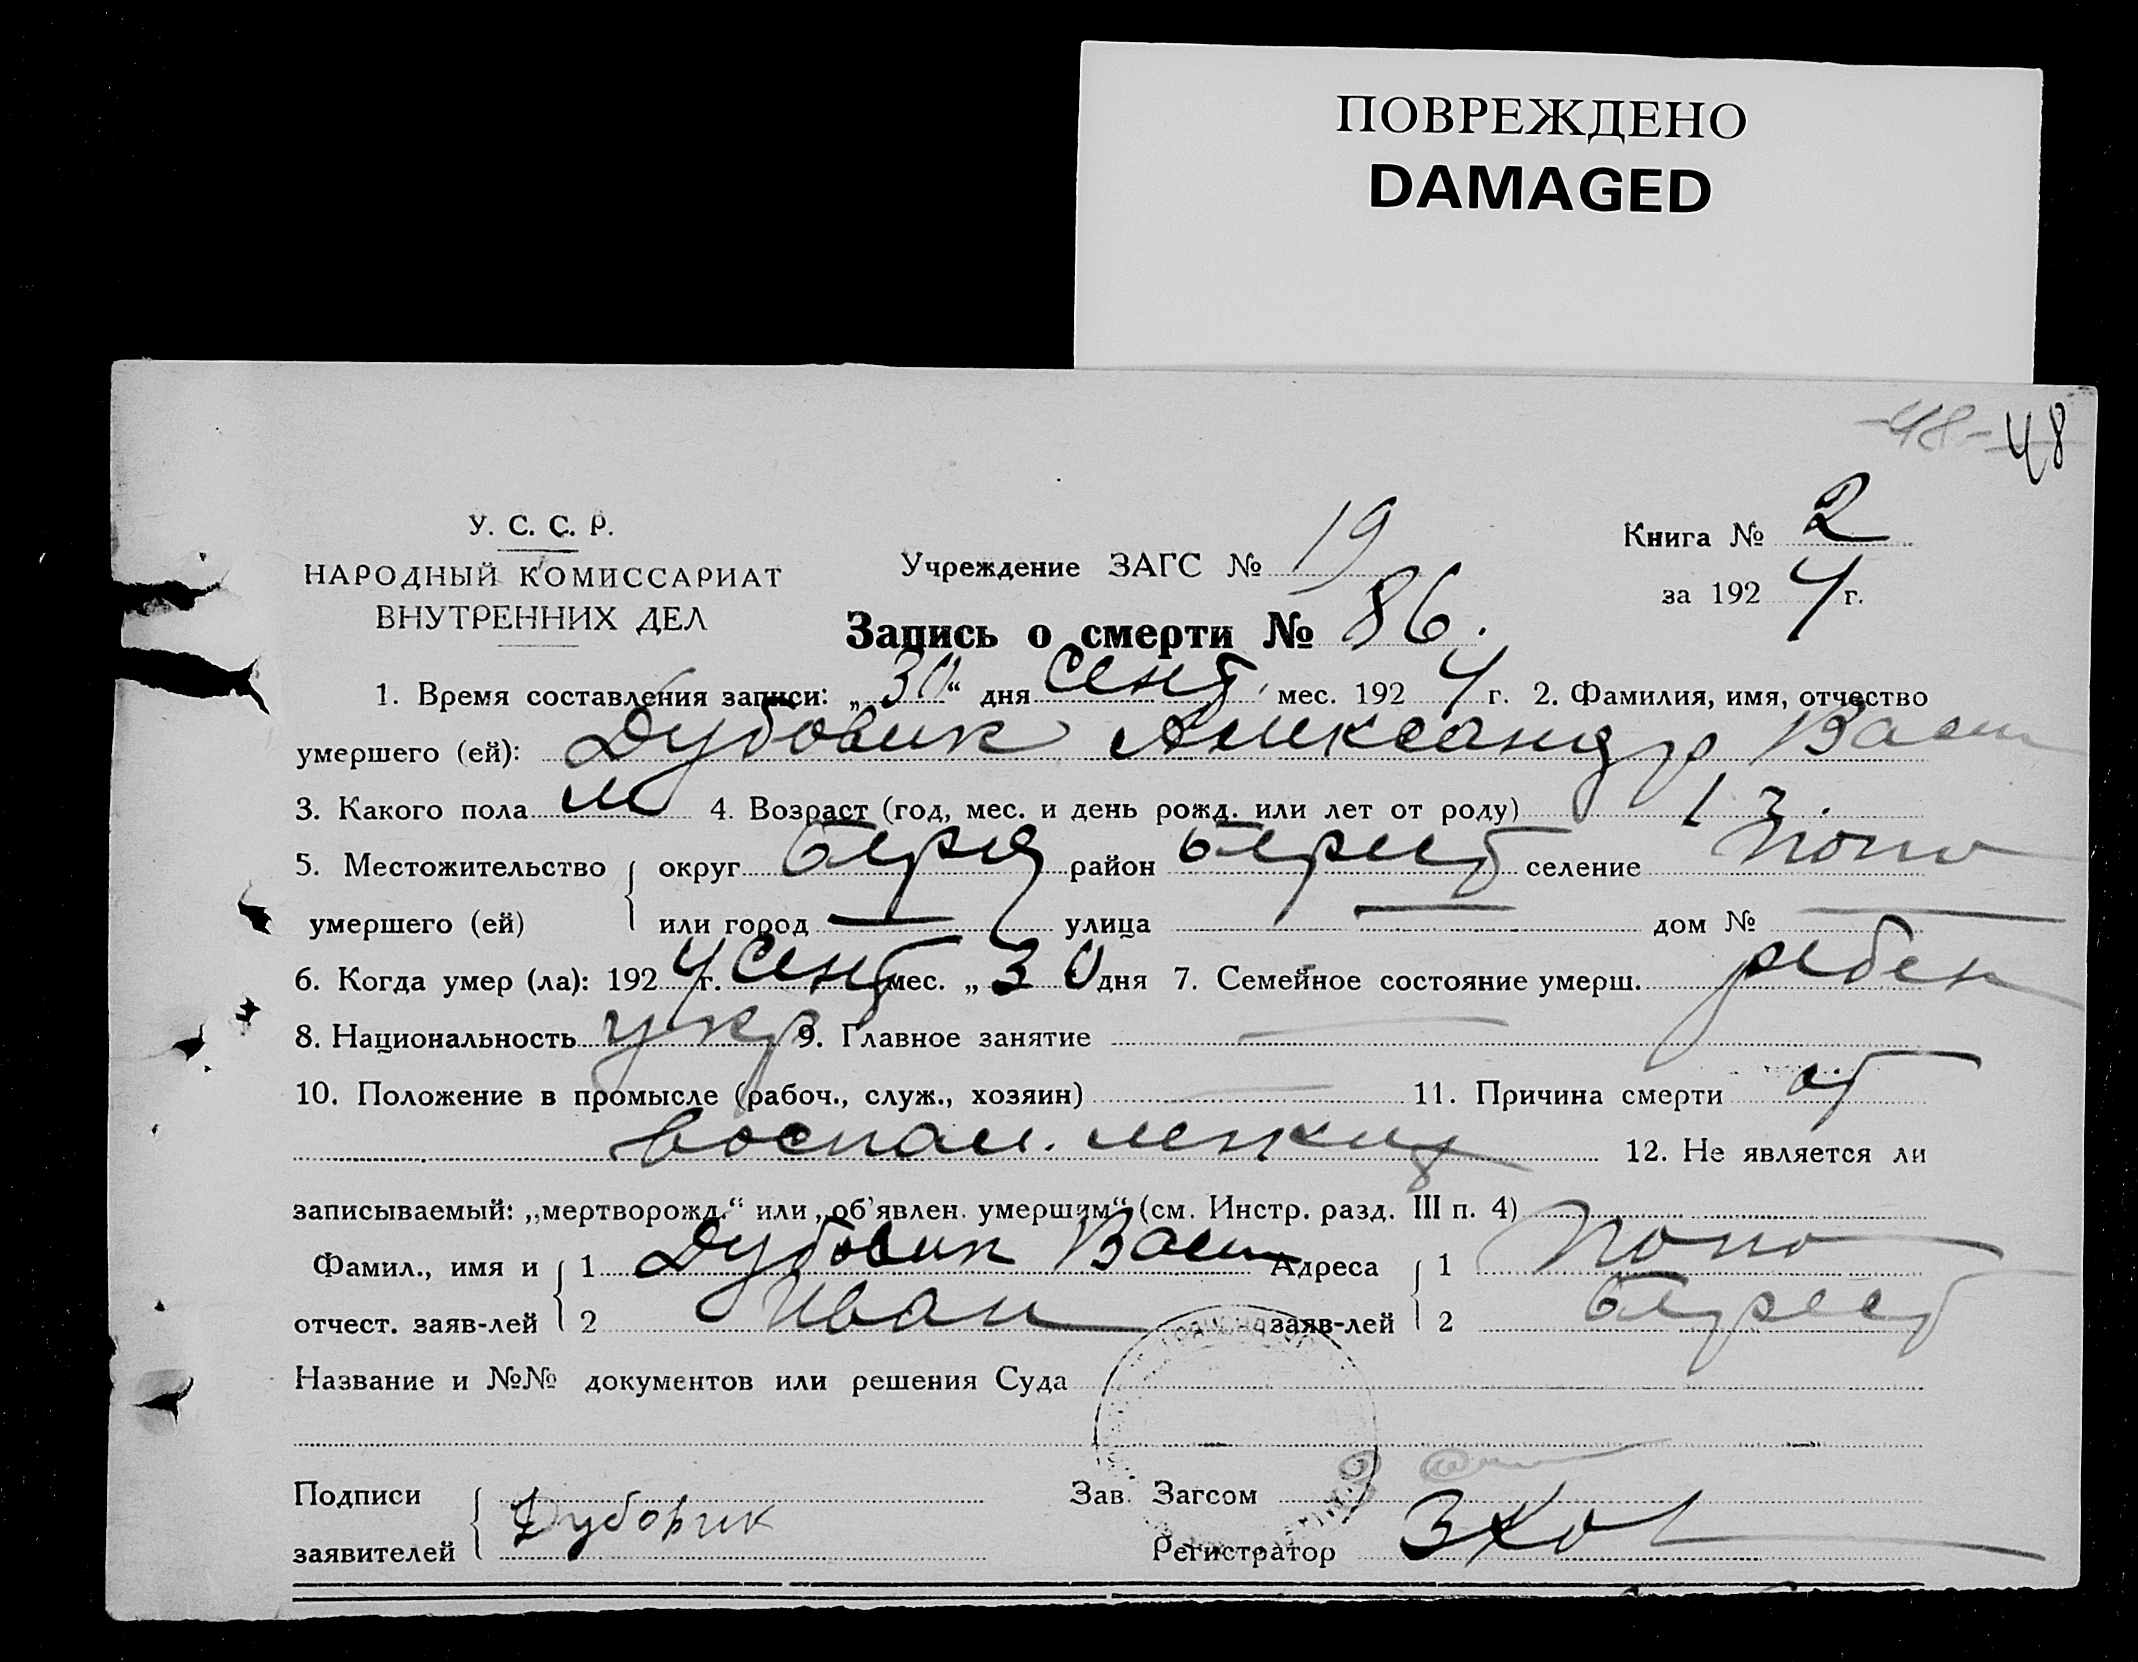 ПОВРЕЖДЕНО
DAMAGED
-48- 48
У. С. С. Р.
НАРОДНЫЙ КОМИССАРИАТ
ВНУТРЕННИХ ДЕЛ
Учреждение ЗАГС № 19
Книга № 2
за 1924 г.
Запись о смерти № 86.
1. Время составления записи: „30“ дня сент. мес. 1924 г. 2. Фамилия, имя, отчество
умершего (ей): Дубовик Александр Васи
3. Какого пола м 4. Возраст (год, мес. и день рожд. или лет от роду) 1 г.
5. Местожительство округ район селение Попо
умершего (ей) или город — улица — дом № —
6. Когда умер (ла): 1924 г. сент мес. „30 дня 7. Семейное состояние умерш. ребен
8. Национальность укр 9. Главное занятие —
10. Положение в промысле (рабоч., служ., хозяин) — 11. Причина смерти от
воспал. легких 12. Не является ли
записываемый: „мертворожд.“ или „об'явлен. умершим“ (см. Инстр. разд. III п. 4)
Фамил., имя и 1 Дубовик Васи Адреса 1 Попо
отчест. заяв-лей 2 Иван заяв-лей 2
Название и №№ документов или решения Суда
Подписи Зав. Загсом
Дубовик
заявителей Регистратор